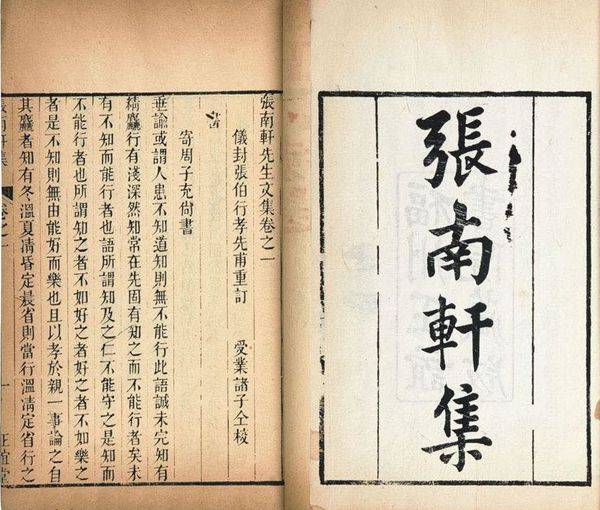 張南軒集
張南軒先生文集卷之一
儀封張伯行孝先甫重訂　受業諸子仝校
書
寄周子充尚書
垂諭或謂人患不知道知則無不能行此語誠未完知有
精麤行有淺深然知常在先固有知之而不能行者矣未
有不知而能行者也語所謂知及之仁不能守之是知而
不能行者也所謂知之者不如好之者好之者不如樂之
者是不知則無由能好而樂也且以孝於親一事論之自
其麤者知有冬溫夏凊昏定晨省則當行溫凊定省行之
張南軒集　卷之一　一　正誼堂